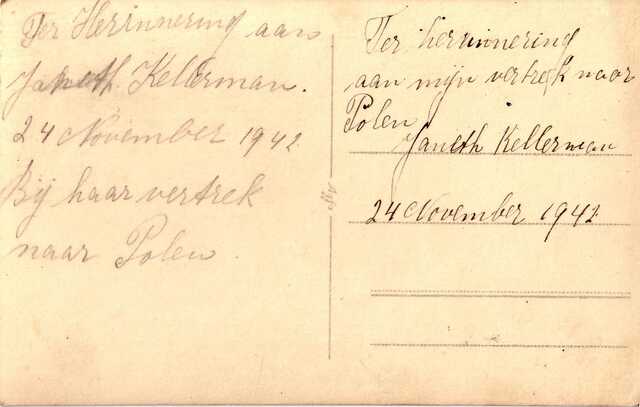 Ter Herinnering aan
Janeth. Kellerman.
24 November 1942
Bij haar vertrek
naar Polen.
Ter herinnering
aan mijn vertrek naar
Polen
Janeth Kellerman
24 November 1942